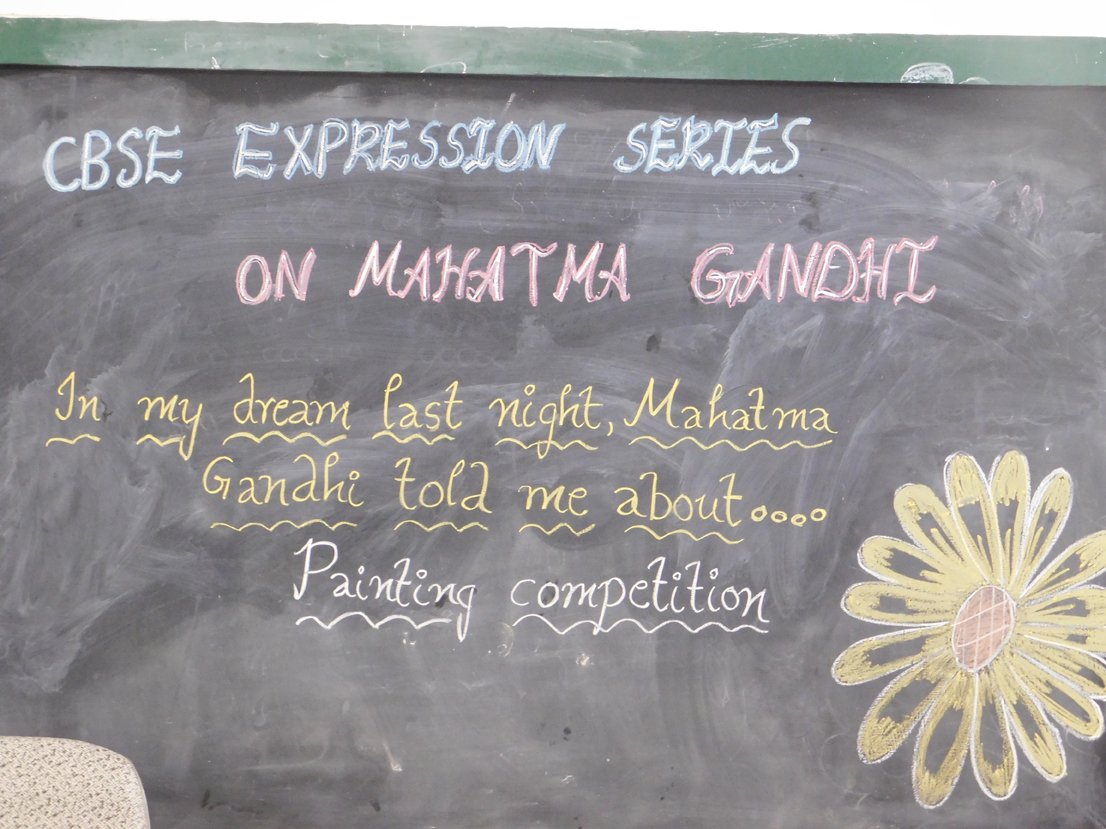 CBSE EXPRESSION SERIES
ON MAHATMA GANDHI
In my dream last night, Mahatma
Gandhi told me about....
Painting competition